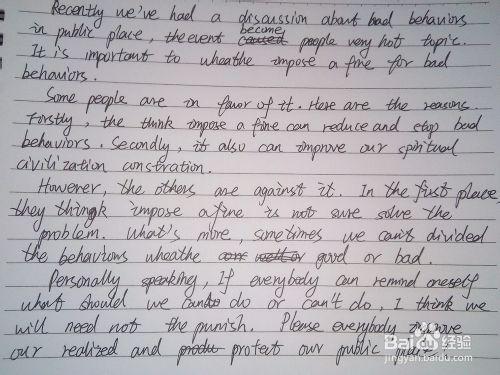 Recently we've had a discussion about bad behaviors
in public place, the event become people very hot topic.
It is important to wheathe impose a fine for bad
behaviors.
Some people are in favor of it. Here are the reasons.
Forstly, the think impose a fine can reduce and stop bad
behaviors. Secondly, it also can improve our spiritual
civilization constration.
However, the others are against it. In the first place,
they thingk impose a fine is not sure solve the
problem. What's more, sometimes we can't divided
the behaviours wheathe good or bad.
Personally speaking, If everybody can remind oneself
what should we do or can't do, I think we
will need not the punish. Please everybody improve
our realized and protect our public
Baidu经验
jingyan.baidu.com